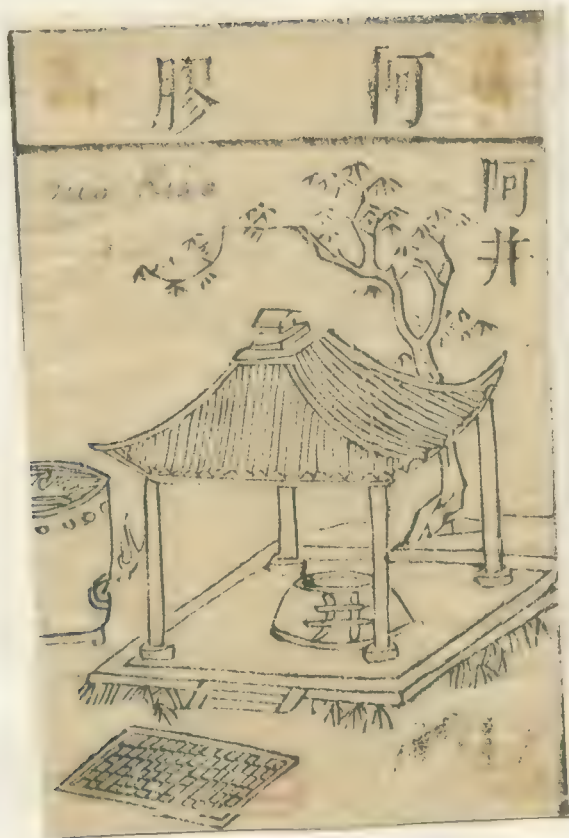 阿膠
阿井
井